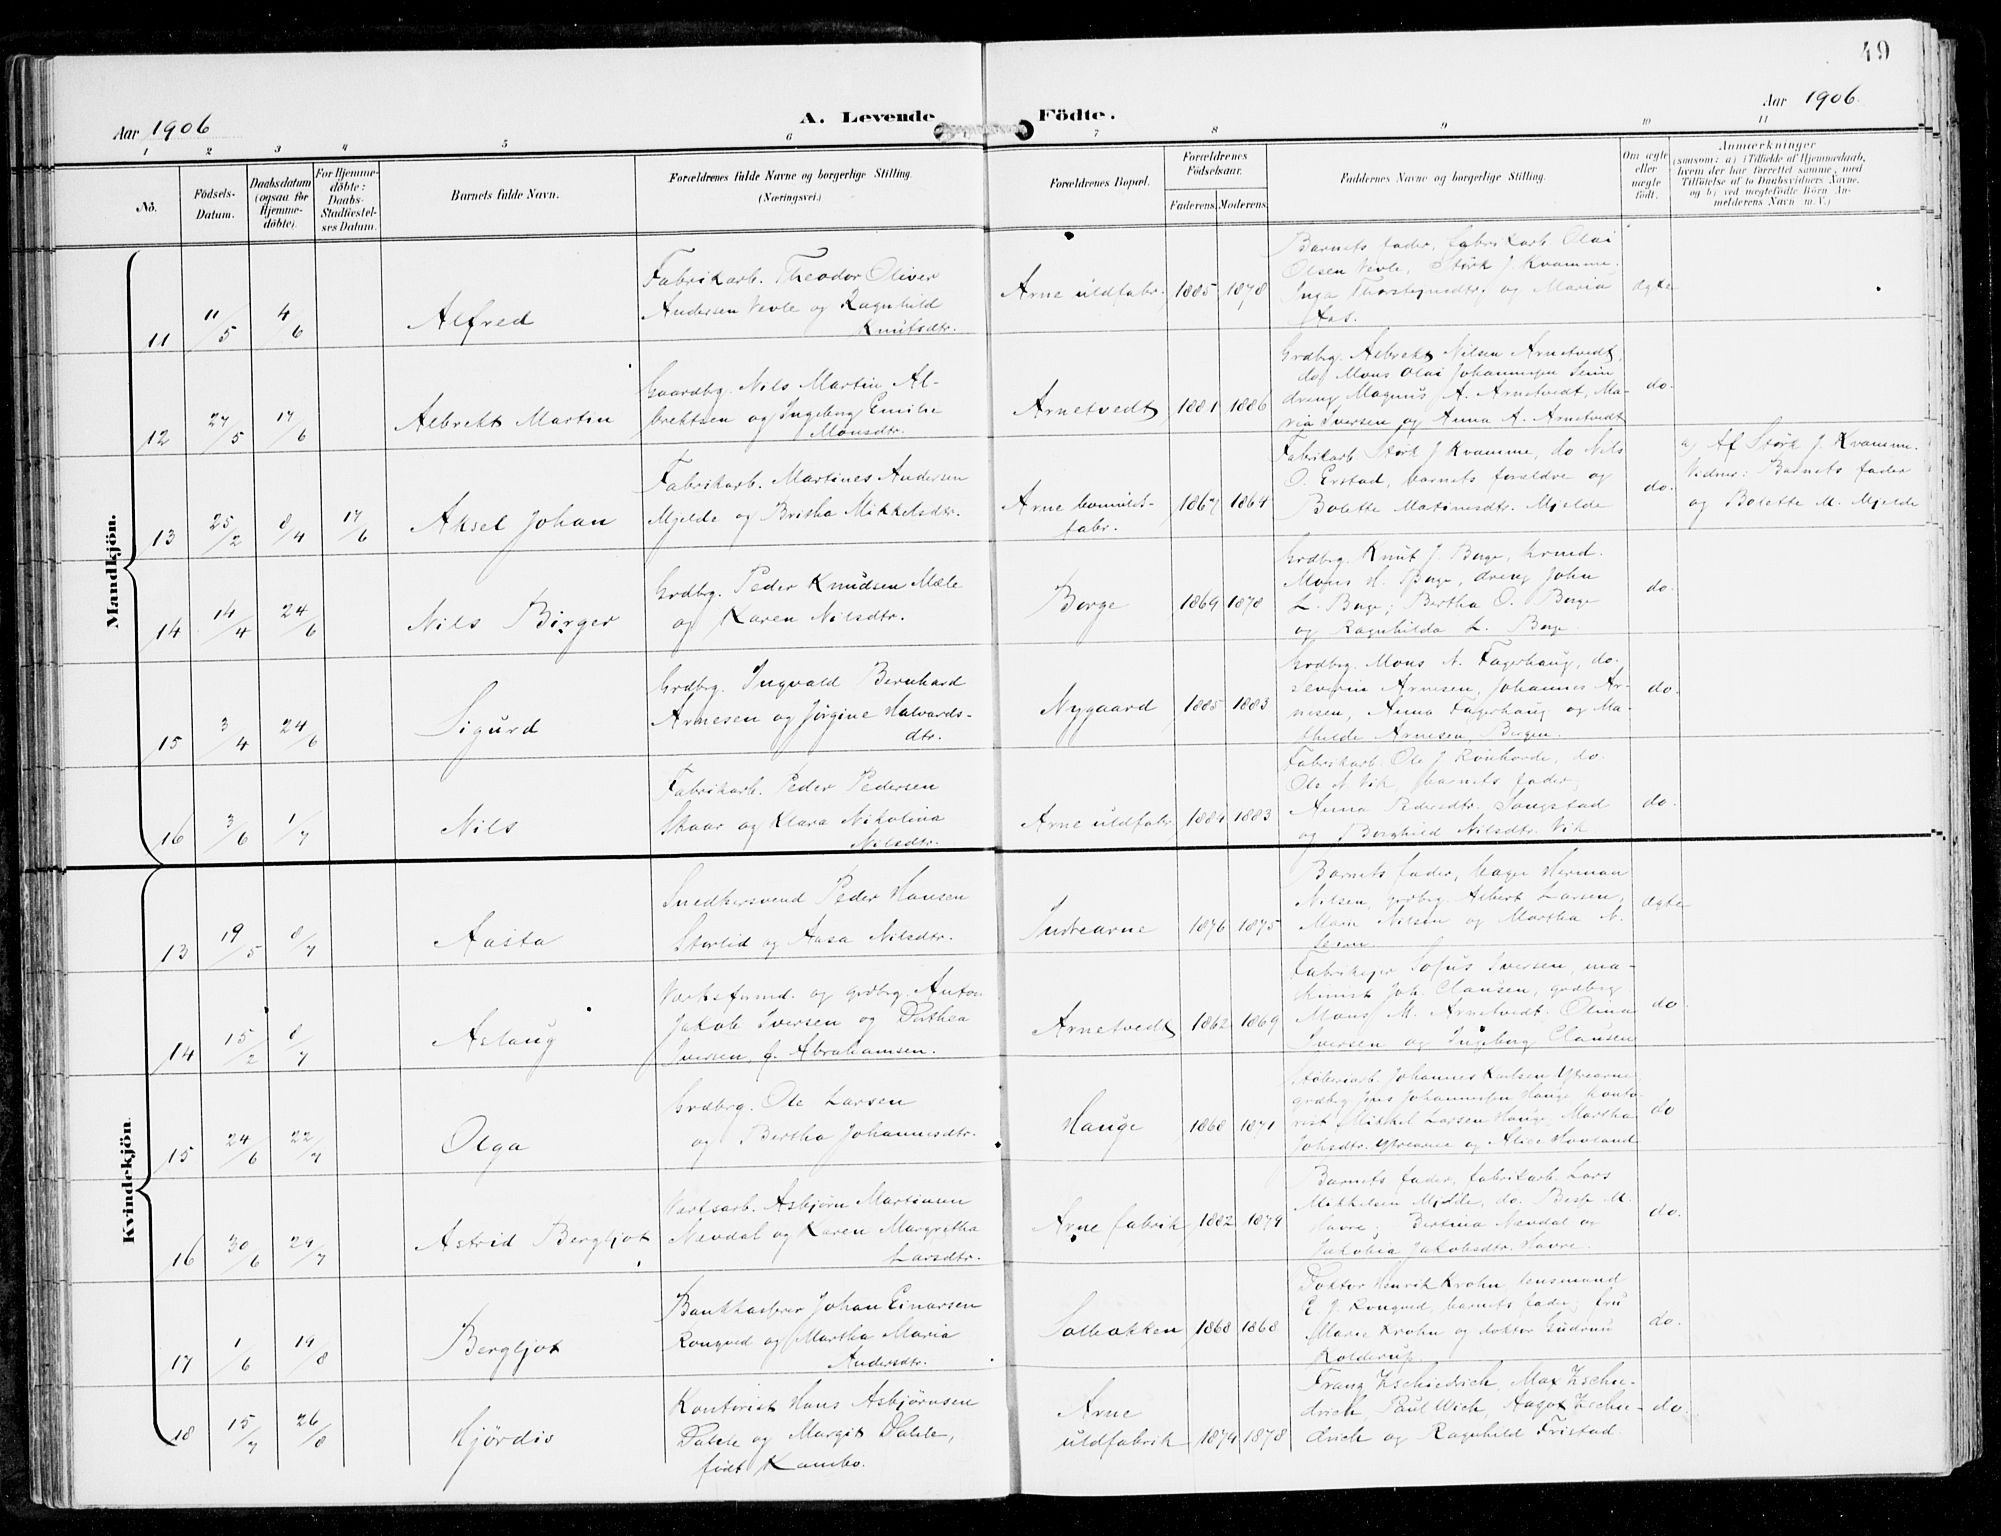 49
Aar 1906
A. Levende Födte.
Aar 1906
1 2 3 4 5 6 7 8 9 10 11
No.
Födsels-Datum.
Daabsdatum (ogsaa for Hjemmedöbte).
For Hjemmedöbte: Daabs-Stadfæstelses Datum.
Barnets fulde Navn.
Forældrenes fulde Navne og borgerlige Stilling. (Næringsvei.)
Forældrenes Bopæl.
Forældrenes Födselsaar.
Faderens. Moderens.
Faddernes Navne og borgerlige Stilling.
Om ægte eller uægte födt.
Anmærkninger
(saasom: a) i Tilfælde af Hjemmedaab, hvem der har forrettet samme, med Tilföielse af to Daabsvidners Navne, og b) ved uægtefödte Börn Anmelderens Navn m. V.)
Mandkjön.
11 11/5 4/6 Alfred
Fabrikarb. Theodor Oliver
Andersen Vevle og Ragnhild
Knutsdtr.
Arne uldfabr. 1885 1878
Barnets fader, fabrikarb. Olai
Olsen Vevle, Störk J. Kvamme.
Inga Thorsteinsdtr. og Maria
Aas.
ægte
12 27/5 17/6 Albrekt Martin
Gaardbg. Nils Martin Al-
brektsen og Ingeborg Emilie
Monsdtr.
Arnetvedt 1881 1886
Grdbrg. Albrekt Nilsen Arnetvedt,
do Mons Olai Johannesen Seim
dreng Magnus A. Arnetvedt, Ma-
ria Iversen og Anna A. Arnetvedt
do.
13 25/2 8/4 17/6 Aksel Johan
Fabrikarb. Martines Andersen
Mjelde og Britha Mikkelsdtr.
Arne bomulds-
fabr. 1867 1864
Fabrikarb Störk J Kvamme, do Nils
O. Erstad, barnets forældre og
Bolette Matinesdtr. Mjelde
do.
a) Af Störk J. Kvamme.
Vidner: Barnets fader
og Bolette M. Mjelde
14 14/4 24/6 Nils Birger
Grdbrg. Peder Knudsen Mæle
og Karen Nilsdtr.
Borge 1869 1878
Grdbrg. Knut J. Borge,
Mons N. Borge, dreng John
L. Borge; Bertha O. Borge
og Ragnhilda L. Borge
do.
15 3/4 24/6 Sigurd
Grdbrg. Ingvald Bernhard
Arnesen og Jörgine Halvards-
dtr.
Nygaard 1885 1883
Grdbrg. Mons A. Fagerhaug, do.
Severin Arnesen, Johannes Ar-
nesen, Anna Fagerhaug og Ma-
thilde Arnesen Bergen.
do.
16 3/6 1/7 Nils
Fabrikarb. Peder Pedersen
Skaar og Klara Nikolina
Nilsdtr.
Arne uldfabr 1884 1883
Fabrikarb. Ole J. Rönhovde, do.
Ole N Vik, barnets fader,
Anna Pedersdtr. Songstad
og Borghild Nilsdtr. Vik
do.
Kvindekjön.
13 19/5 8/7 Aasta
Snedkersvend Peder Hansen
Storlid og Aasa Nilsdtr.
Indrearne 1876 1875
Barnets fader, bager Herman
Nilsen, grdbrg. Albert Larsen,
Marie Nilsen og Martha N.
Seim
ægte
14 15/2 8/7 Aslaug
Værksfmd. og grdbrg. Anton
Jakob Iversen og Dorthea
Iversen, f. Abrahamsen.
Arnetvedt 1862 1869
Fabrikejer Sofus Iversen, ma-
skinist Joh. Clausen, grdbrg
Mons M. Arnetvedt. Olina
Iversen og Ingeborg Clausen
do.
15 24/6 22/7 Olga
Grdbrg. Ole Larsen
og Bertha Johannesdtr.
Hauge 1868 1871
Johannes Karlsen Ytrearne,
grdbrg Jens Johannessen Hauge, konto-
rist Mikkel Larsen Hauge, Martha
Johsdtr. Ytrearne og Alice Hovland
do
16 30/6 29/7 Astrid Bergljot
Værksarb. Asbjörn Martinsen
Nevdal og Karen Margretha
Larsdtr.
Arne fabrik 1882 1879
Barnets fader, fabrikarb. Lars
Mikkelsen Mjelde, do. M.
Havre; Bertina Nevdal og
Jakobia Jakobsdtr. Havre.
do.
17 1/6 19/8 Bergljot
Bankkasserer Johan Einarsen
Rongved og Martha Maria
Andersdtr.
Solbakken 1868 1868
Doktor Henrik Krohn, lensmand
E J. Rongved, barnets fader, fru
Marie Krohn og doktor Gudrun
Kolderup
do.
18 15/7 26/8 Hjördis
Kontorist Hans Asbjörnsen
Dahle og Margit Dahle,
födt Kambo.
Arne
uldfabrik 1879 1878
Franz Zschiedrich, Max Zschie-
drich, Paul Wich, Aagot Zschie-
drich og Ragnhild Fristad.
do.